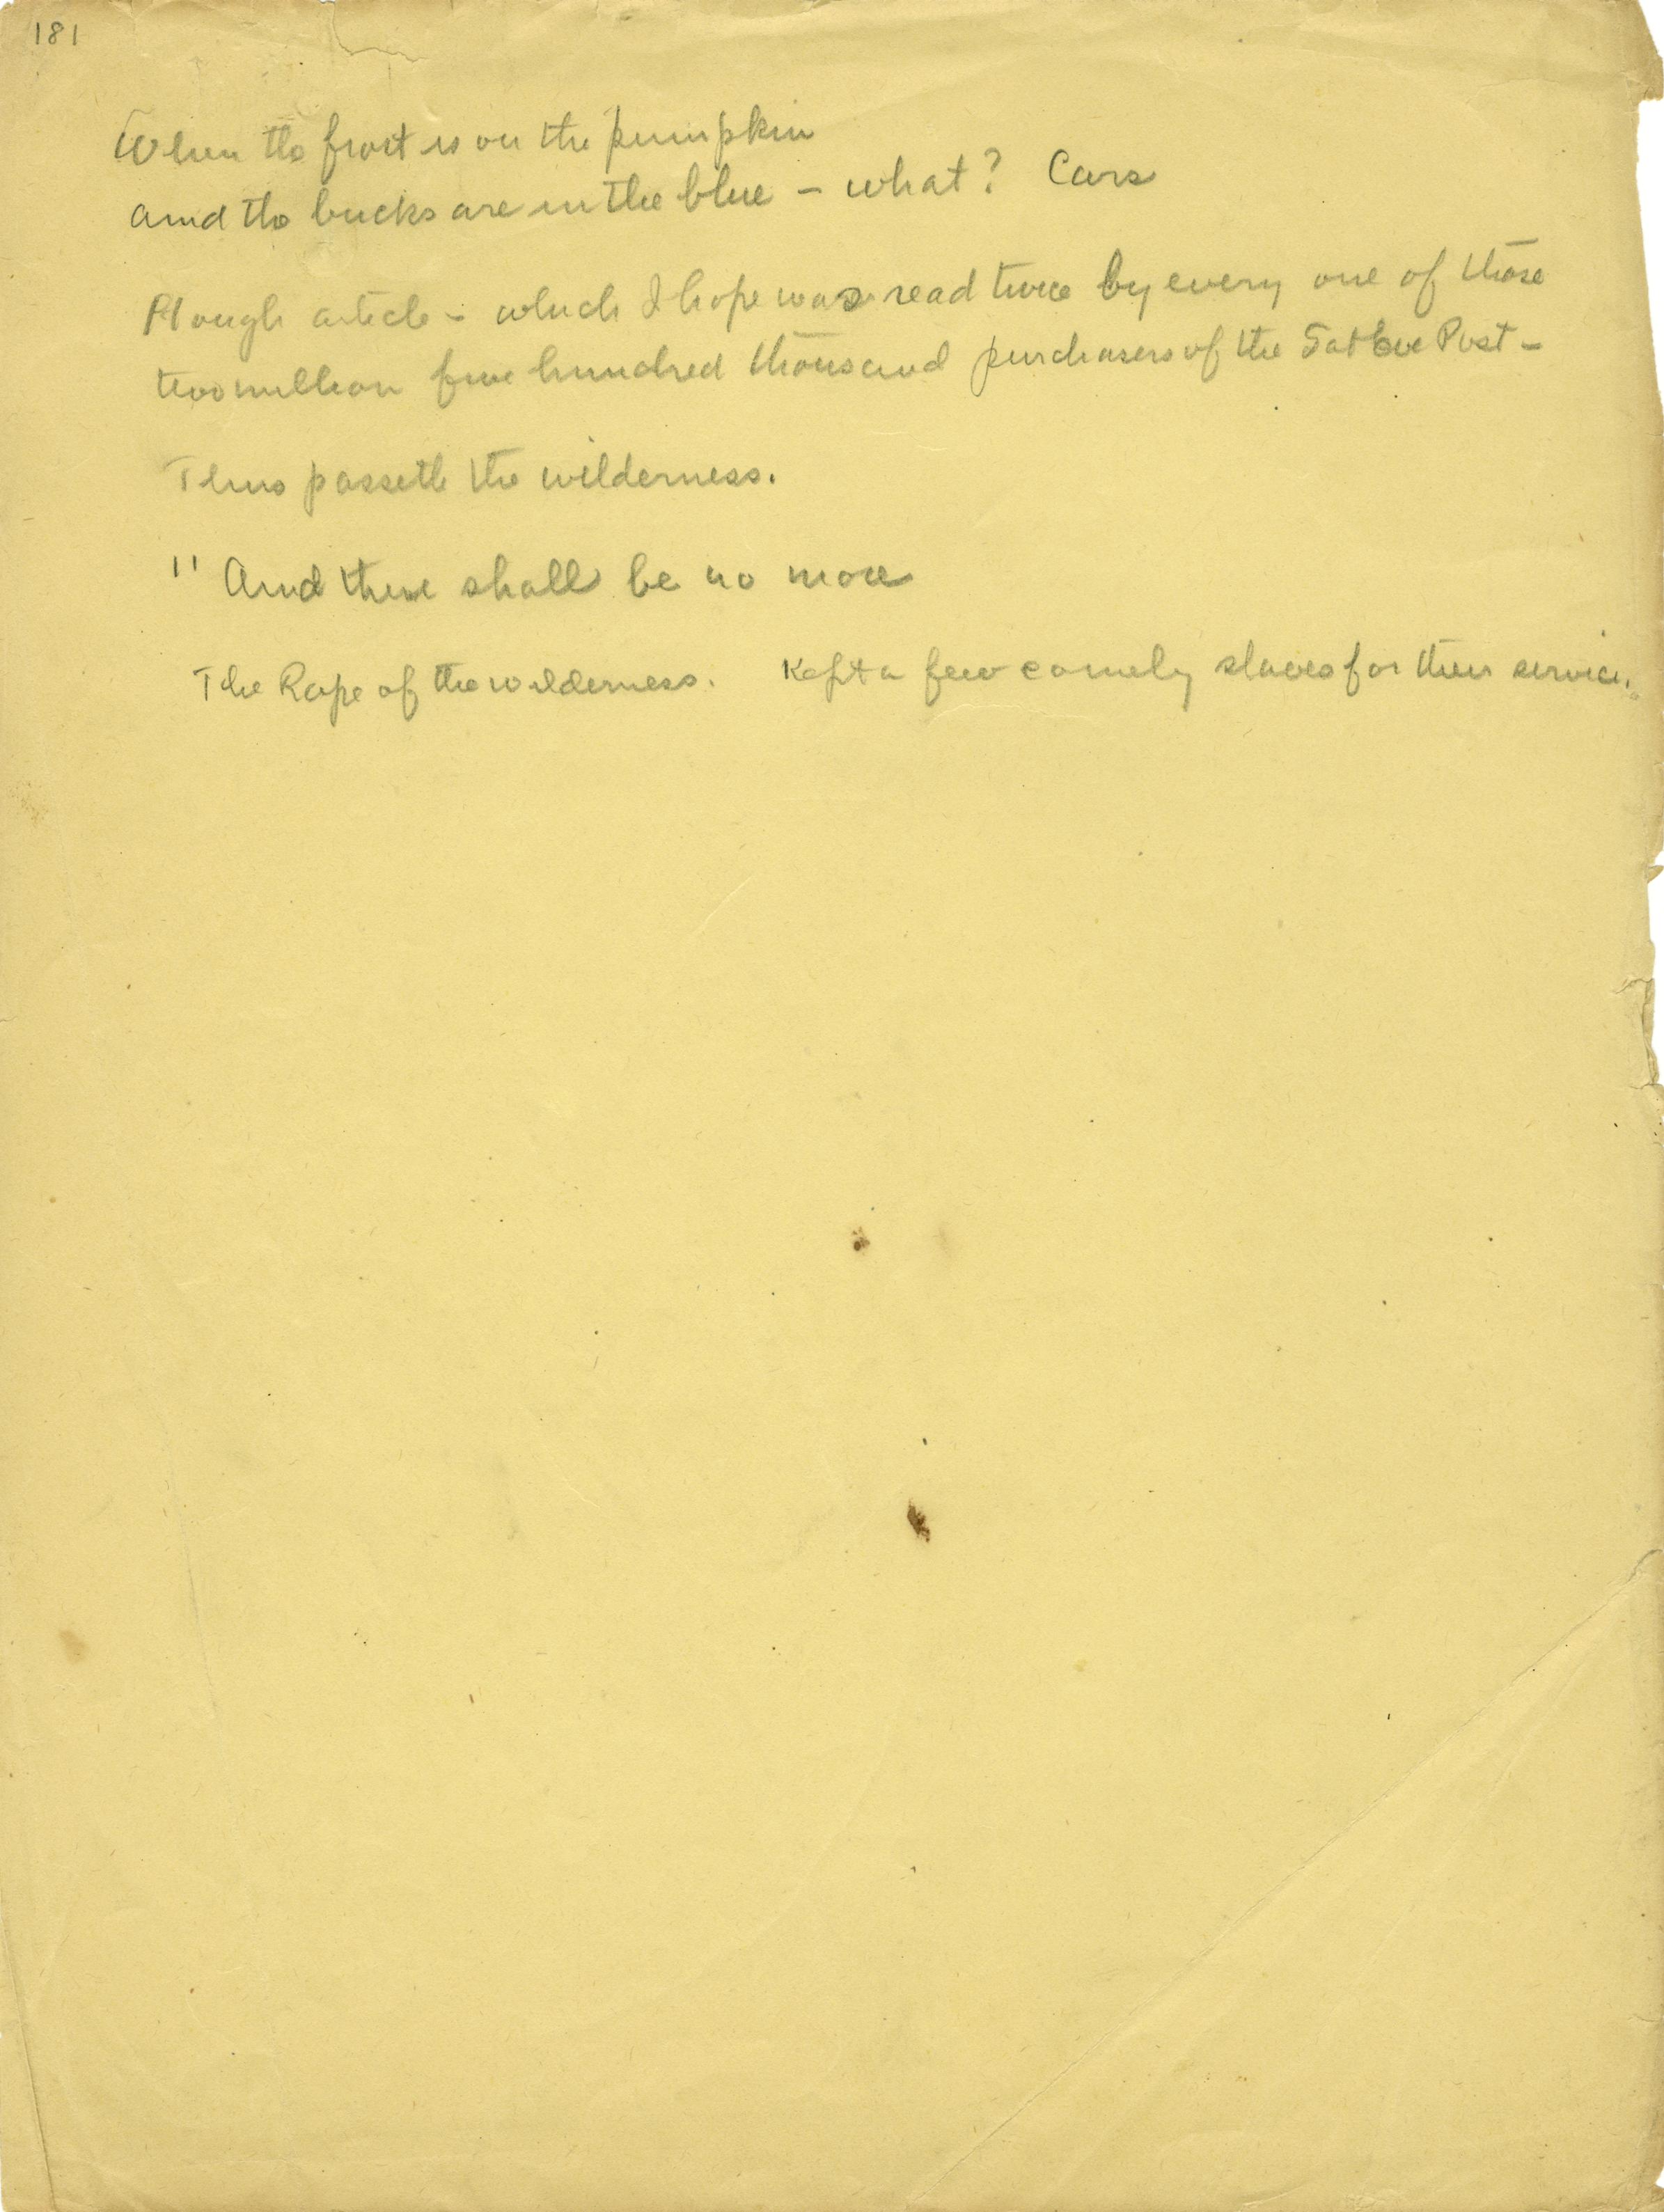 181
When the frost is on the pumpkin
and the bucks are in the blue – what? Cars
Plough article – which I hope was read twice by every one of those
two million five hundred thousand purchasers of the Sat Eve Post –
Thus passeth the wilderness.
" And there shall be no more
The Rape of the wilderness. Kept a few comely slaves for their service.